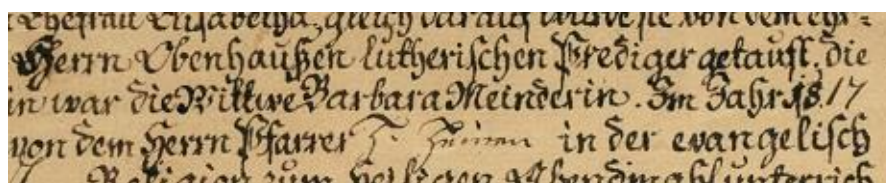 Ehefrau Elisabetha, gleich darauf wurde sie von dem ehr=
Herrn Obenhaußen lutherischen Prediger getauft, die
in war die Wittwe Barbara Meinderin. Im Jahr 1817
von dem Herrn Pfarrer in der evangelisch
Religion zum heiligen Abendmahl unterrich